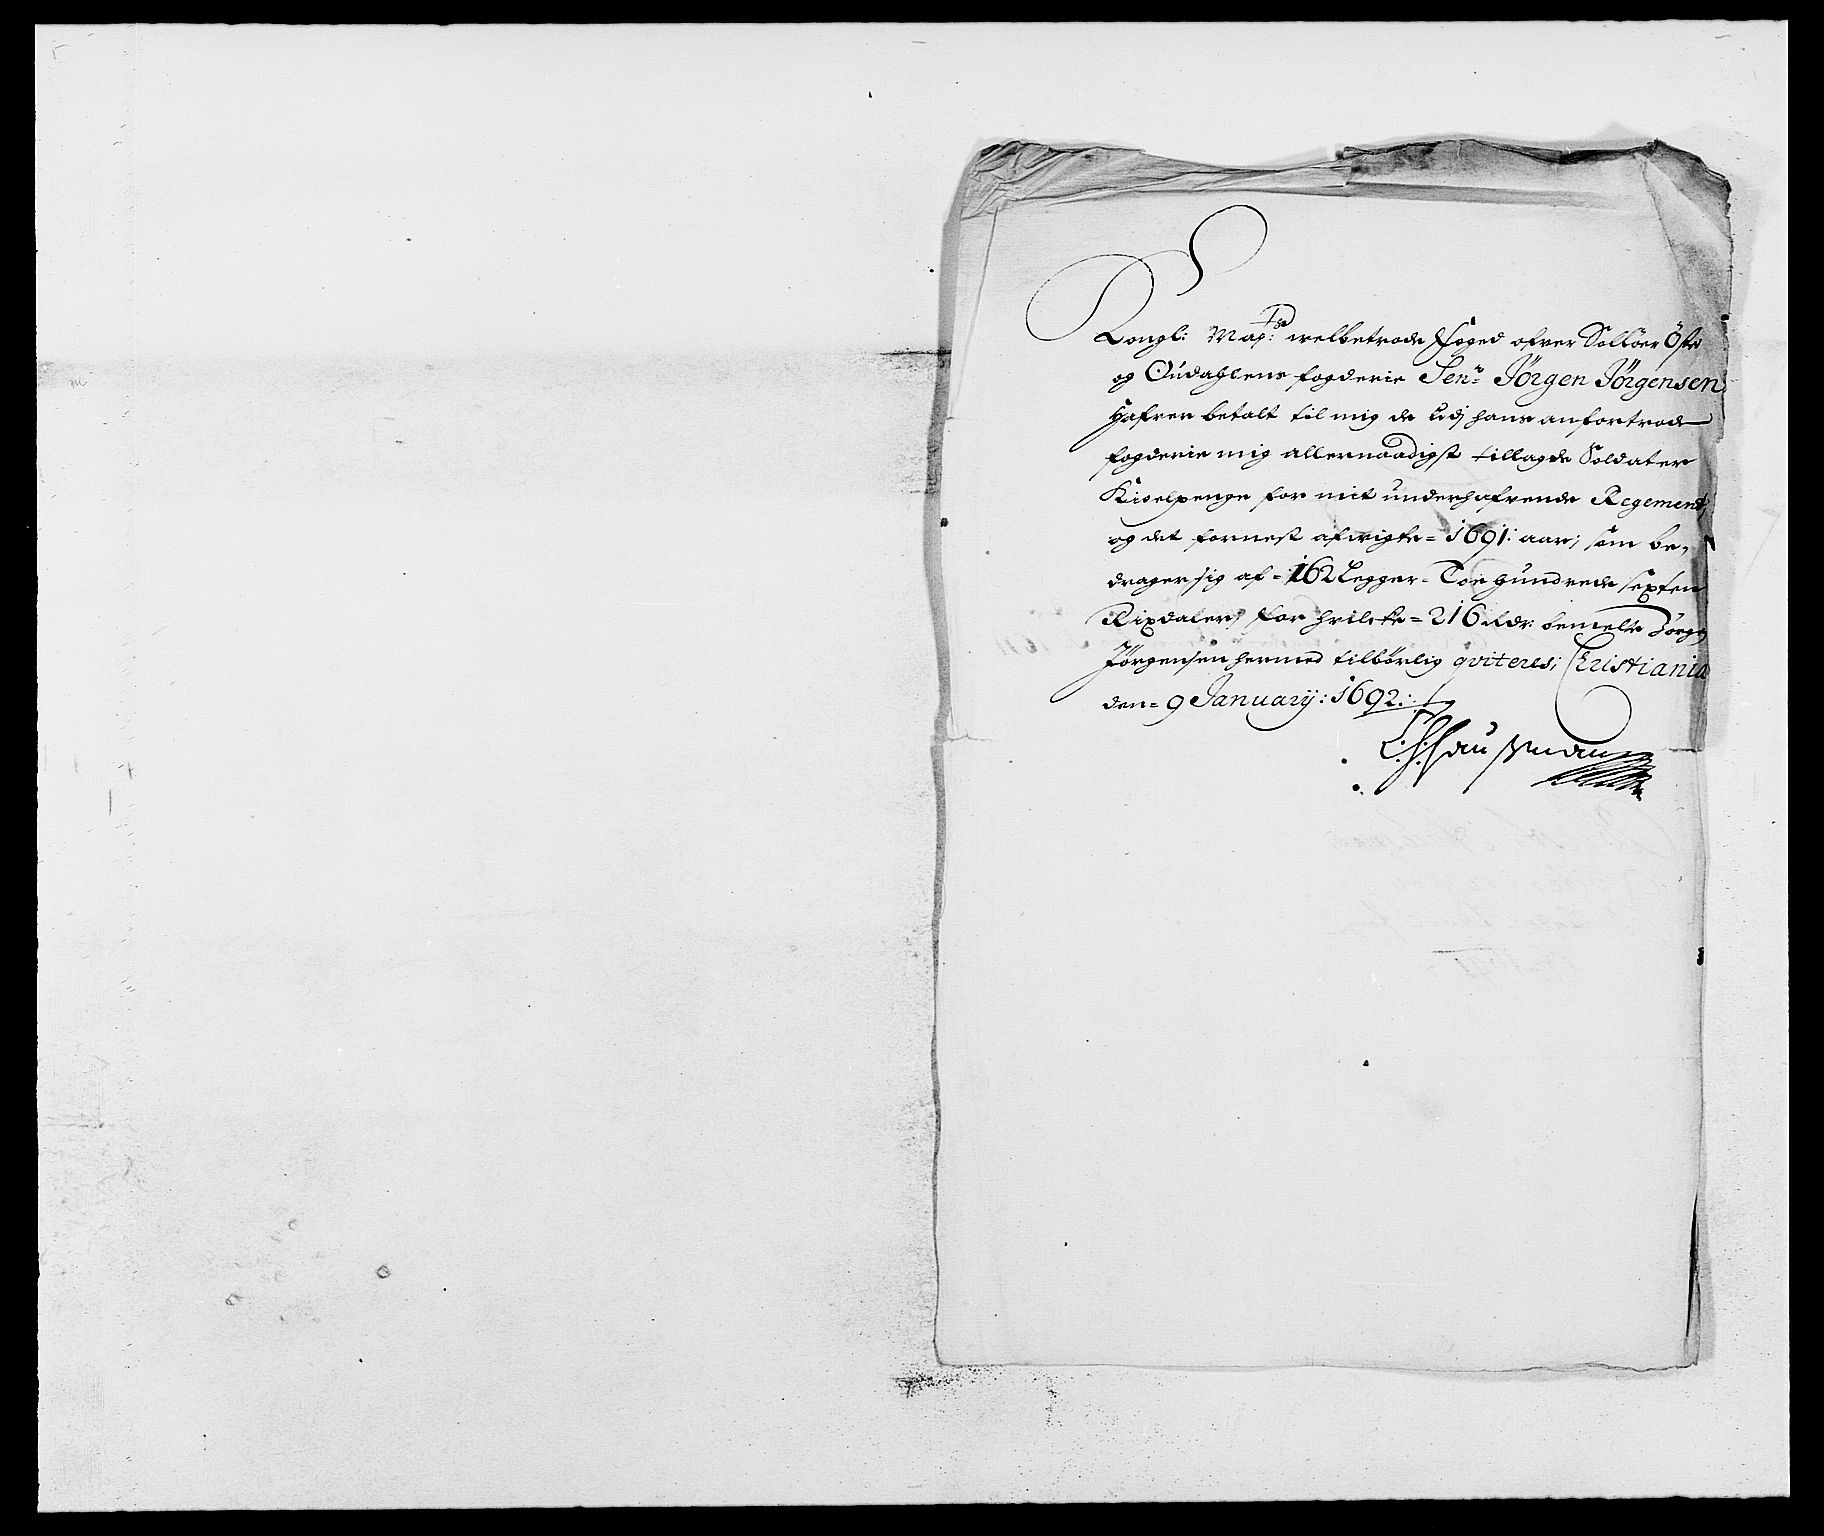 Kongl: Maj:ts welbetrode Foged ofver Solöer Öster
og Oudahlens fogderie Sen:r Jörgen Jörgensen
Hafver betalt til mig de udj hans anfortrode
fogderie mig allernaadigst tillagde Soldater
Kiolpenge for mit underhafvende Regement,
og det fornest afvigte= 1691: aar; som be-
drager sig af= 162 Legger= Toe hundrede sexten
Rixdaler; for hvilcke= 216 Rdr: bemelte Jörgen
Jörgensen hermed tilbörlig qviteres; Christiania
den= 9 January: 1692:
C:H:Hausman